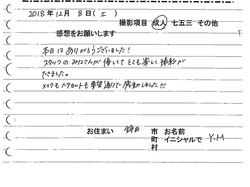 2018年12月 8日(土)
撮影項目 成人 七五三 その他
感想をお願いします
本日はありがとうございました!
スタッフのみなさんが優しくてとても楽しく撮影が
できました。
メイクもヘアセットも希望通りで感動しました!!
お住まい 市町村 お名前 イニシャルで Y.M